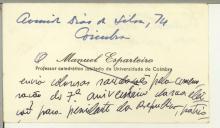 Avenida Dias da Silva, 74
Coimbra
O Manuel Esparteiro
Professor catedrático jubilado da Universidade de Coimbra
envia calorosas saudações pela comemo
ração do 7º aniversário da sua
para presidente da República